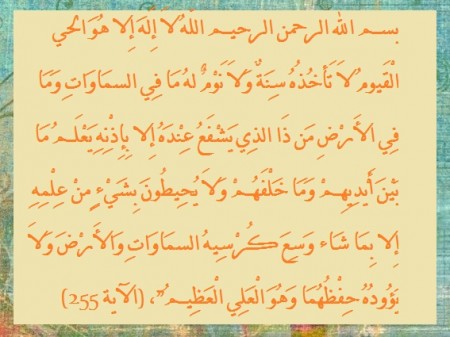 بسم الله الرحمن الرحيم اللّهُ لاَ إِلَهَ إِلا هُوَ الحي
الْقَيومُ لاَ تَأْخُذُهُ سِنَةٌ وَلاَ نَوْمٌ لهُ مَا فِي السمَاوَاتِ وَمَا
فِي الأَرْضِ مَن ذَا الذِي يَشْفَعُ عِنْدَهُ إِلا بِإِذْنِهِ يَعْلَمُ مَا
بَيْنَ أَيدِيهِمْ وَمَا خَلْفَهُمْ وَلاَ يُحِيطُونَ بِشَيْءٍ مِنْ عِلْمِهِ
إِلا بِمَا شَاء وَسِعَ كُرْسِيهُ السمَاوَاتِ وَالأَرْضَ وَلاَ
يَؤُودُهُ حِفْظُهُمَا وَهُوَ الْعَلِي الْعَظِيمُ”، (الآية 255)